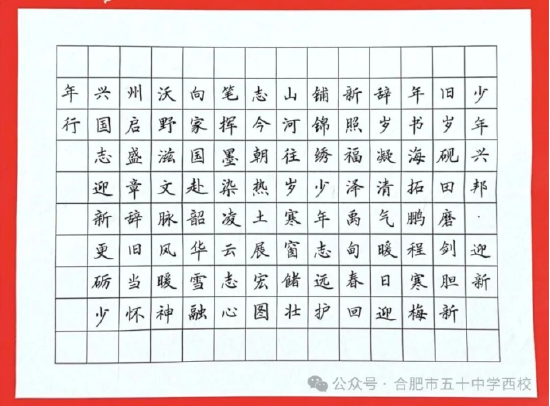 少年兴邦·迎新
旧岁砚田磨剑胆新
年书海拓鹏程寒梅
辞岁凝清气暖日迎
新照福泽禹甸春回
铺锦绣少年志远护
山河往岁寒窗储壮
志今朝热土展宏图
笔挥墨染凌云志心
向家国赴韶华雪融
沃野滋文脉风暖神
州启盛章辞旧当怀
兴国志迎新更砺少
年行
公众号·合肥市五十中学西校